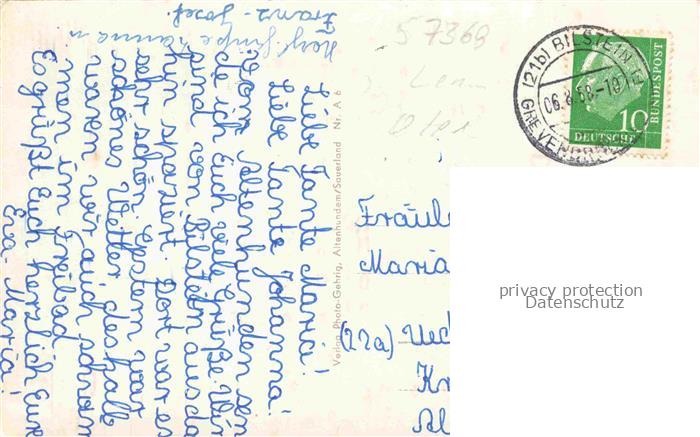 Liebe Tante Maria!
Liebe Tante Johanna!
Vom Altenhunden sen
de ich Euch viele Grüße. Wir
sind von Bilstein ausda
hin spaziert. Dort war es
sehr schön. Gestern war
schönes Wetter deshalb
waren wir auch schwim
men im Freibad.
Es grüßt Euch herzlich Eure
Eva Maria!
Franz-Josef.
Verlag Photo-Gehrig, Altenhundem/Sauerland Nr. A 6
57369
(21b) BILSTEIN
06.8.58-19
GREVENBR
BUNDESPOST
10
DEUTSCHE
Fräule
Maria
(22a) Ued
Kr
Al
privacy protection
Datenschutz